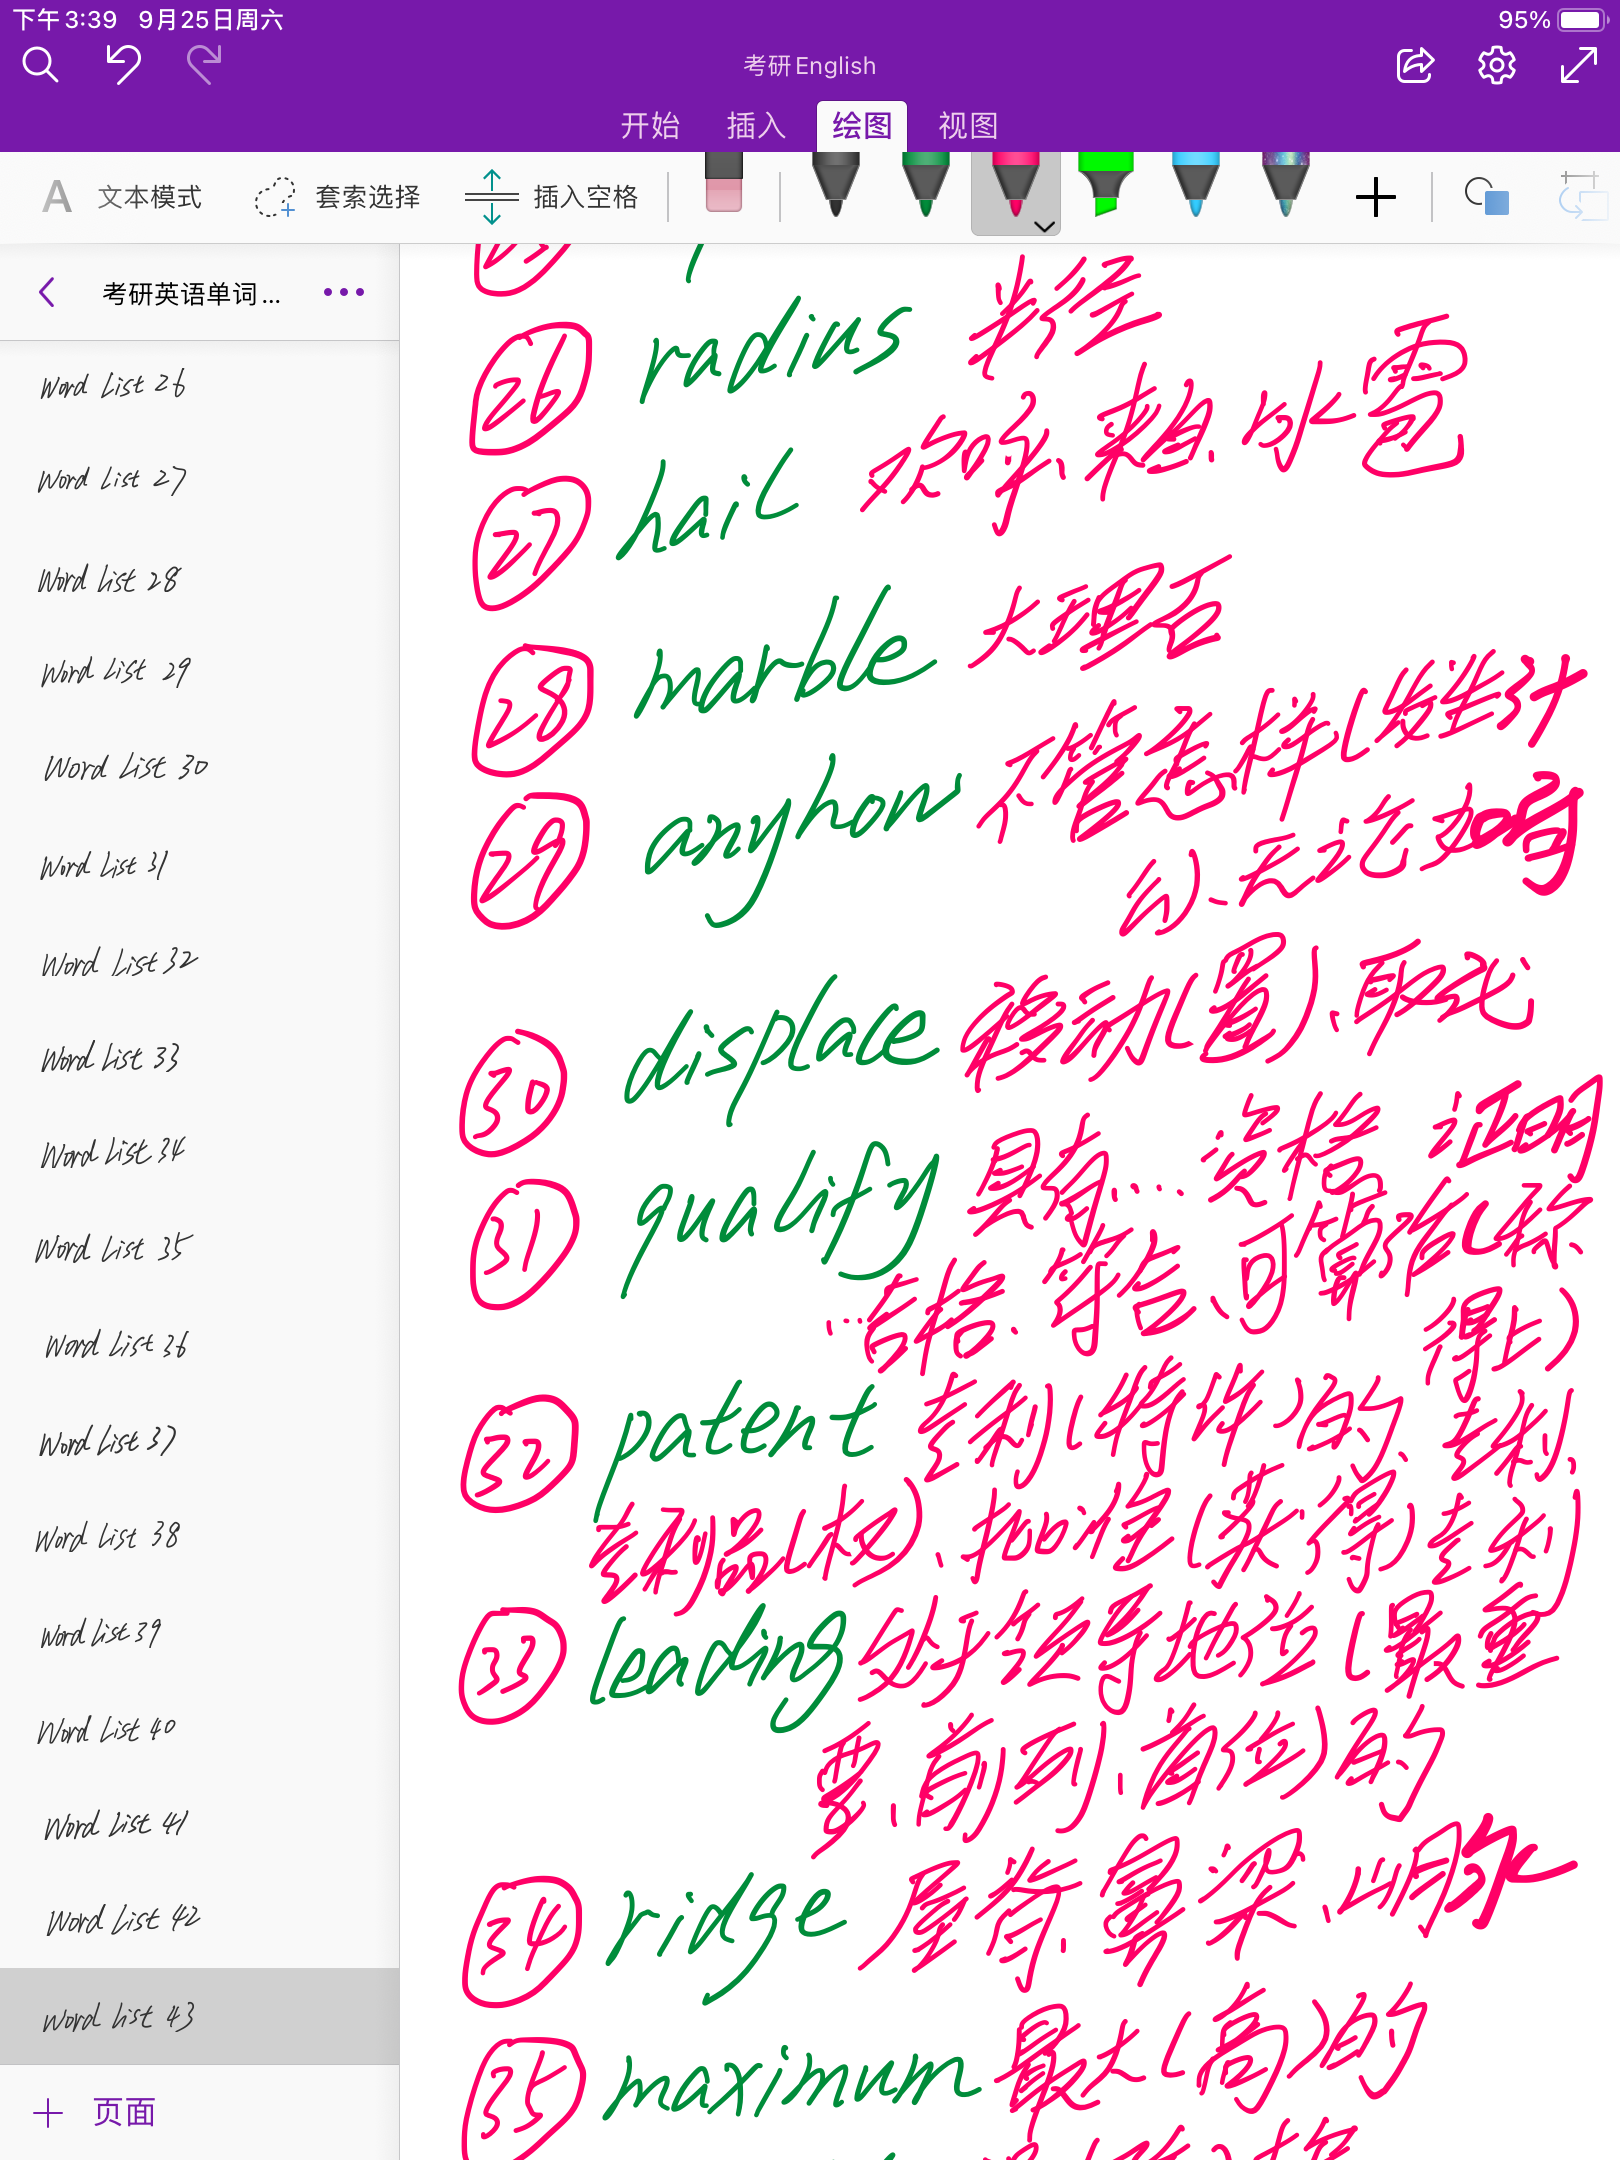 下午3:39 9月25日周六
95%
考研English
开始 插入 绘图 视图
A 文本模式 套索选择 插入空格
考研英语单词...
Word List 26
Word List 27
Word List 28
Word List 29
Word List 30
Word List 31
Word List 32
Word List 33
Word List 34
Word List 35
Word List 36
Word List 37
Word List 38
Word List 39
Word List 40
Word List 41
Word List 42
Word List 43
页面
26 radius 半径
27 hail 欢呼、来自、冰雹
28 marble 大理石
29 anyhow 不管怎样(发生什
么)、无论如何
30 displace 移动(置)、取代
31 qualify 具有...资格 证明
...合格、符合、可靠治(称
得上)
32 patent 专利(特许)的、专利、
专利品(权)、批准(获得)专利
33 leading 处于领导地位(最重
要、前列、首位)的
34 ridge 屋脊、鼻梁、山脉
35 maximum 最大(高)的